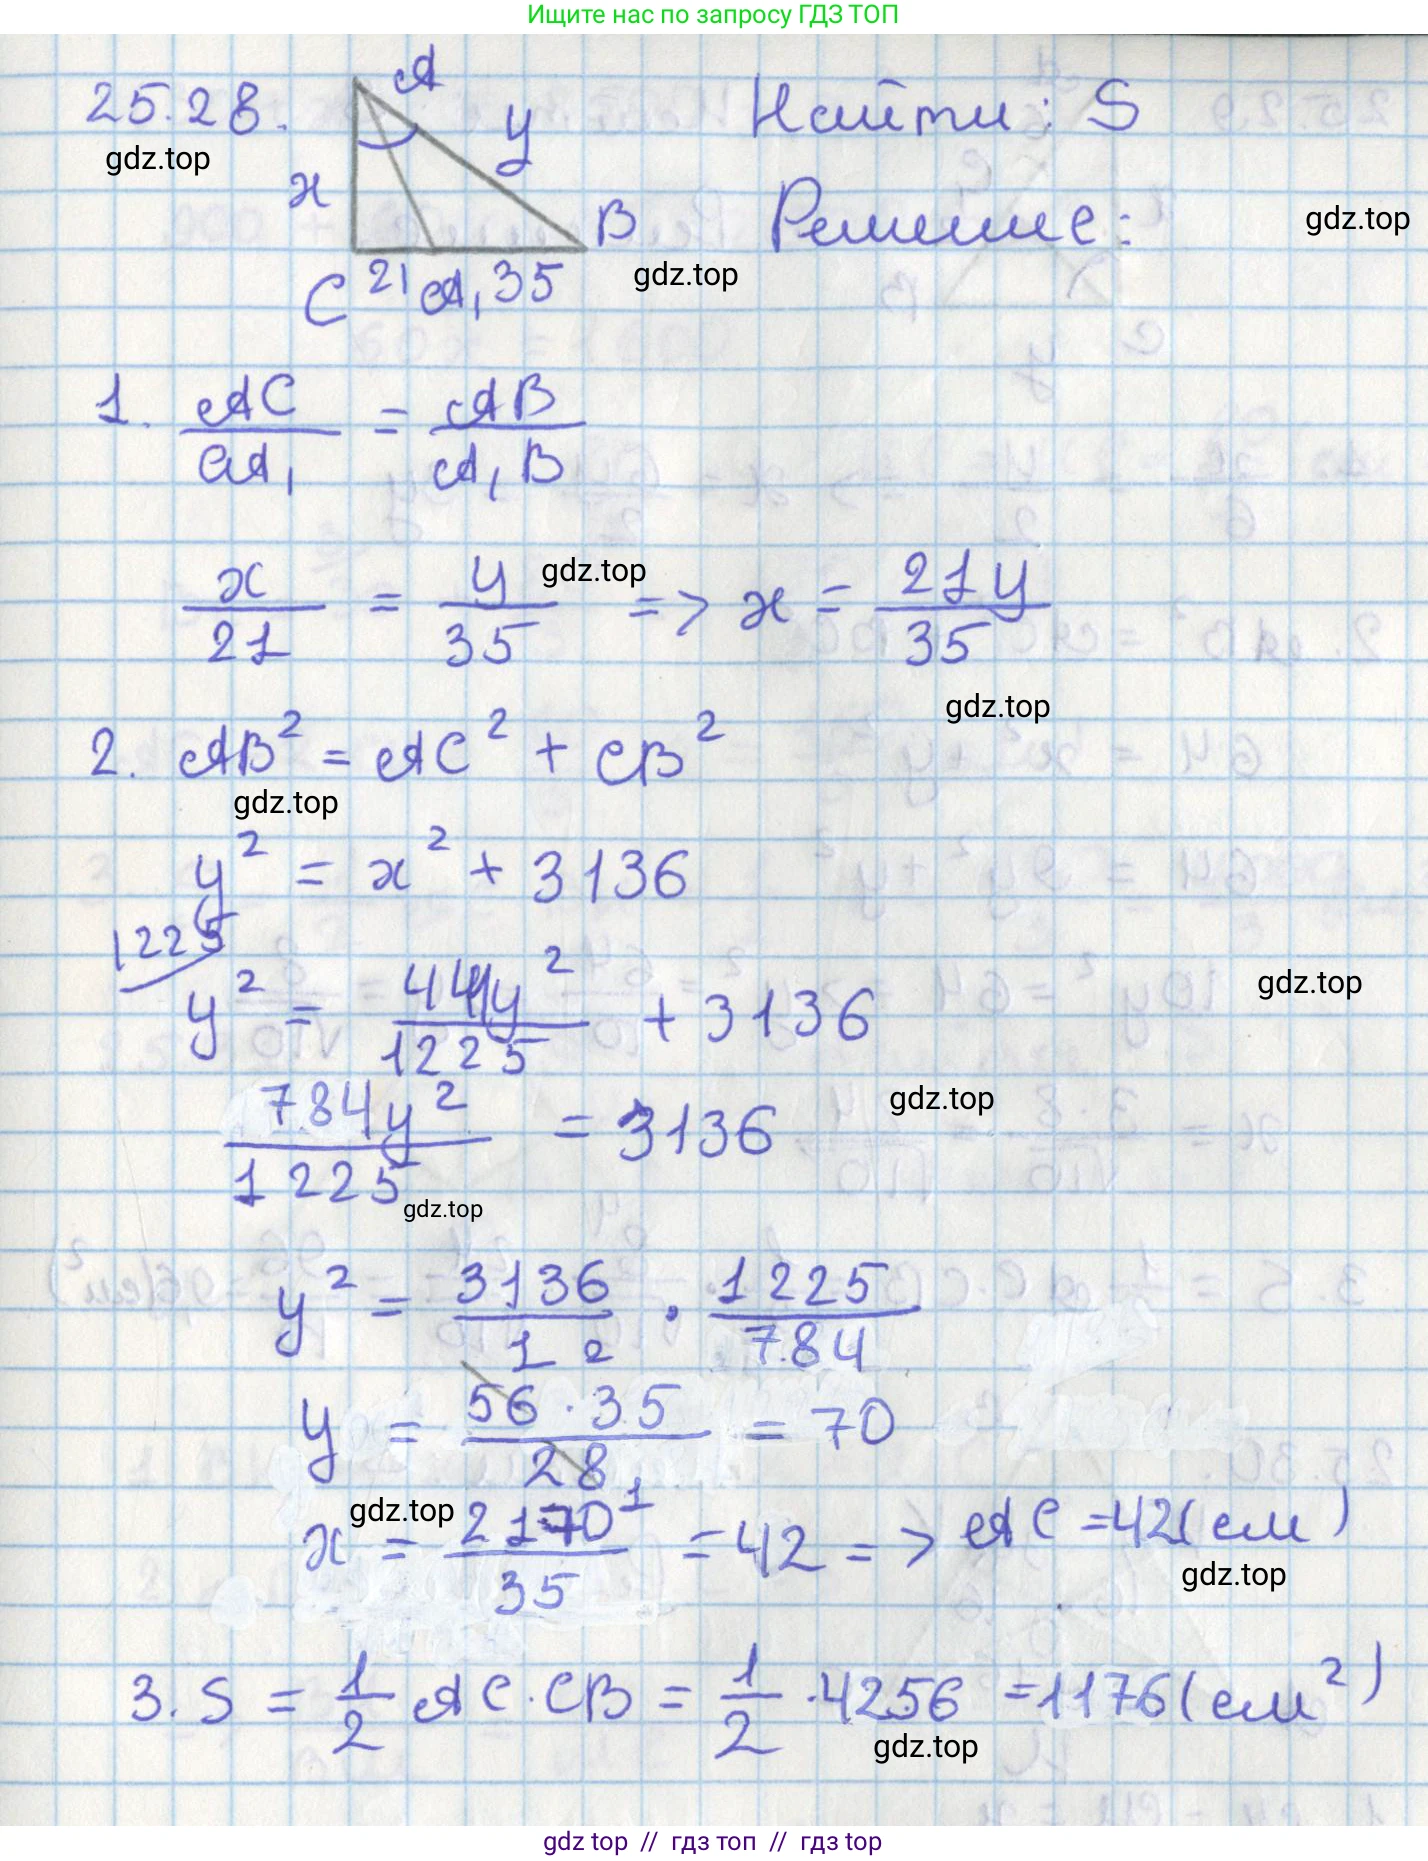 Ищите нас по запросу ГДЗ ТОП
25.28.
gdz.top
A
y
x
B
C 21 A₁ 35
Найти: S
Решение:
gdz.top
gdz.top
1. AC/CA₁ = AB/A₁B
x/21 = y/35 => x = 21y/35
gdz.top
gdz.top
2. AB² = AC² + CB²
gdz.top
y² = x² + 3136
1225/
y² = 441y²/1225 + 3136
gdz.top
784y²/1225 = 3136
gdz.top
gdz.top
y² = 3136/1 · 1225/784
y = 56 · 35/28 = 70
2
gdz.top
x = 21 70/35 = 42 => AC = 42(см)
1
gdz.top
3. S = 1/2 AC · CB = 1/2 · 42 56 = 1176(см²)
gdz.top
gdz top // гдз топ // гдз top